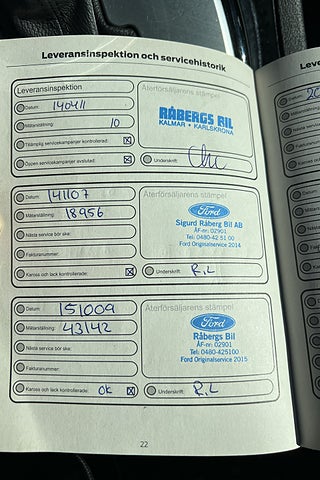 Leveransinspektion och servicehistorik
Leveransinspektion
Återförsäljarens stämpel
Datum: 140411
Mätarställning: 10
RÅBERGS BIL
KALMAR • KARLSKRONA
Tillämplig servicekampanjer kontrollerad:
Öppen servicekampanjer avslutad:
Underskrift:
Datum: 141107
Återförsäljarens stämpel
Mätarställning: 18956
Ford
Nästa service bör ske:
Sigurd Råberg Bil AB
ÅF-nr: 02901
Fakturanummer:
Tel: 0480-42 51 00
Ford Originalservice 2014
Kaross och lack kontrollerade:
Underskrift: R.L
Datum: 151009
Återförsäljarens stämpel
Mätarställning: 43142
Ford
Nästa service bör ske:
Råbergs Bil
ÅF-nr: 02901
Fakturanummer:
Tel: 0480-425100
Ford Originalservice 2015
Kaross och lack kontrollerade: OK
Underskrift: R.L
22